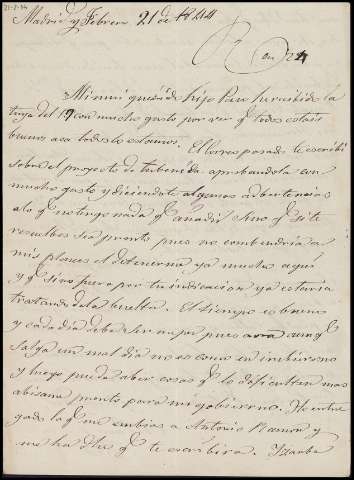 21-2-44
Madrid y Febrero 21 de 1844
R on 24
Mi muy querido hijo Paco he recibido la
tuya del 19 con mucho gusto por ver q todos estais
buenos aca todos lo estamos. El correo pasado te escribi
sobre el proyecto de tu benida aprobandola con
mucho gusto y diciendote algunas advertencias
a lo q no tengo nada q anadir sino q si te
resuelbes sea pronto pues no combendria a
mis planes el detenerme ya mucho aqui
y q si no fuera por tu indicacion ya estaria
tratando de la buelta. El tiempo es bueno
y cada dia debe ser mejor pues aunq
salga un mal dia no es como en imbierno
y luego puede aber cosas q lo dificulten mas
abisame pronto para mi gobierno. He entre
gado la q me embias a Antonio Ramon y
me ha dho q te escribira.